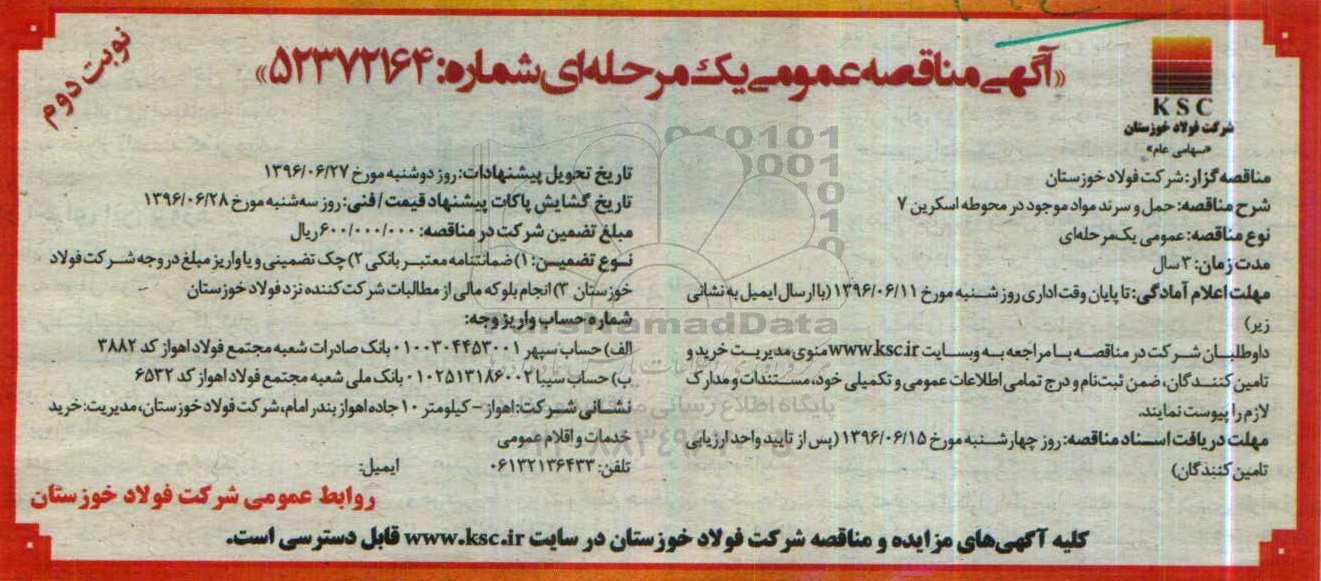 نوبت دوم
«آگهی مناقصه عمومی یک مرحله‌ای شماره: ۵۲۳۷۲۱۶۴»
KSC
شرکت فولاد خوزستان
«سهامی عام»
مناقصه گزار: شرکت فولاد خوزستان
شرح مناقصه: حمل و سرند مواد موجود در محوطه اسکرین ۷
نوع مناقصه: عمومی یک‌مرحله‌ای
مدت زمان: ۳ سال
مهلت اعلام آمادگی: تا پایان وقت اداری روز شنبه مورخ ۱۳۹۶/۰۶/۱۱ (با ارسال ایمیل به نشانی
زیر)
داوطلبان شرکت در مناقصه با مراجعه به وبسایت www.ksc.ir منوی مدیریت خرید و
تامین کنندگان، ضمن ثبت‌نام و درج تمامی اطلاعات عمومی و تکمیلی خود، مستندات و مدارک
لازم را پیوست نمایند.
مهلت دریافت اسناد مناقصه: روز چهارشنبه مورخ ۱۳۹۶/۰۶/۱۵ (پس از تایید واحد ارزیابی
تامین کنندگان)
تاریخ تحویل پیشنهادات: روز دوشنبه مورخ ۱۳۹۶/۰۶/۲۷
تاریخ گشایش پاکات پیشنهاد قیمت/ فنی: روز سه‌شنبه مورخ ۱۳۹۶/۰۶/۲۸
مبلغ تضمین شرکت در مناقصه: ۶۰۰/۰۰۰/۰۰۰ ریال
نوع تضمین: ۱) ضمانتنامه معتبر بانکی ۲) چک تضمینی و یا واریز مبلغ در وجه شرکت فولاد
خوزستان ۳) انجام بلوکه مالی از مطالبات شرکت کننده نزد فولاد خوزستان
شماره حساب واریز وجه:
الف) حساب سپهر ۰۱۰۰۳۰۴۴۵۳۰۰۱ بانک صادرات شعبه مجتمع فولاد اهواز کد ۳۸۸۲
ب) حساب سیبا ۰۱۰۲۵۱۳۱۸۶۰۰۲ بانک ملی شعبه مجتمع فولاد اهواز کد ۶۵۳۲
نشانی شرکت: اهواز - کیلومتر ۱۰ جاده اهواز بندر امام، شرکت فولاد خوزستان، مدیریت: خرید
خدمات و اقلام عمومی
تلفن: ۰۶۱۳۲۱۳۶۴۳۳ ایمیل:
روابط عمومی شرکت فولاد خوزستان
کلیه آگهی‌های مزایده و مناقصه شرکت فولاد خوزستان در سایت www.ksc.ir قابل دسترسی است.